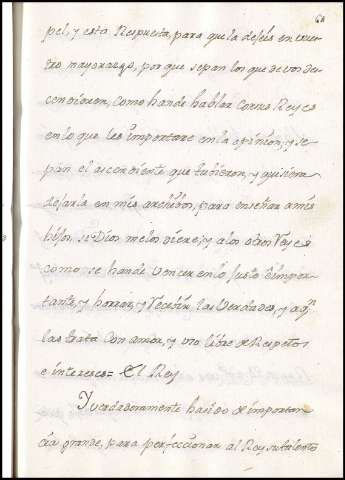 60
pel, y esta Respuesta, para que la dejéis en vues-
tro mayorasgo, por que sepan los que de vos de-
cendieren, como han de hablar con sus Reyes
en lo que les importare en la opinion, y se-
pan el ascendiente que tubieron, y quisiera
dejarla en mis archibos, para enseñar a mis
hijos, si Dios me los diere, y a los otros Reyes
como se han de vencer en lo justo é impor-
tante, y honrar, y recebir las verdades, y aql.
las trata con amor, y vso libre de Respetos
e intereses = El Rey
Y verdaderamente ha sido de importan-
cia grande, para perficcionar al Rey su talento